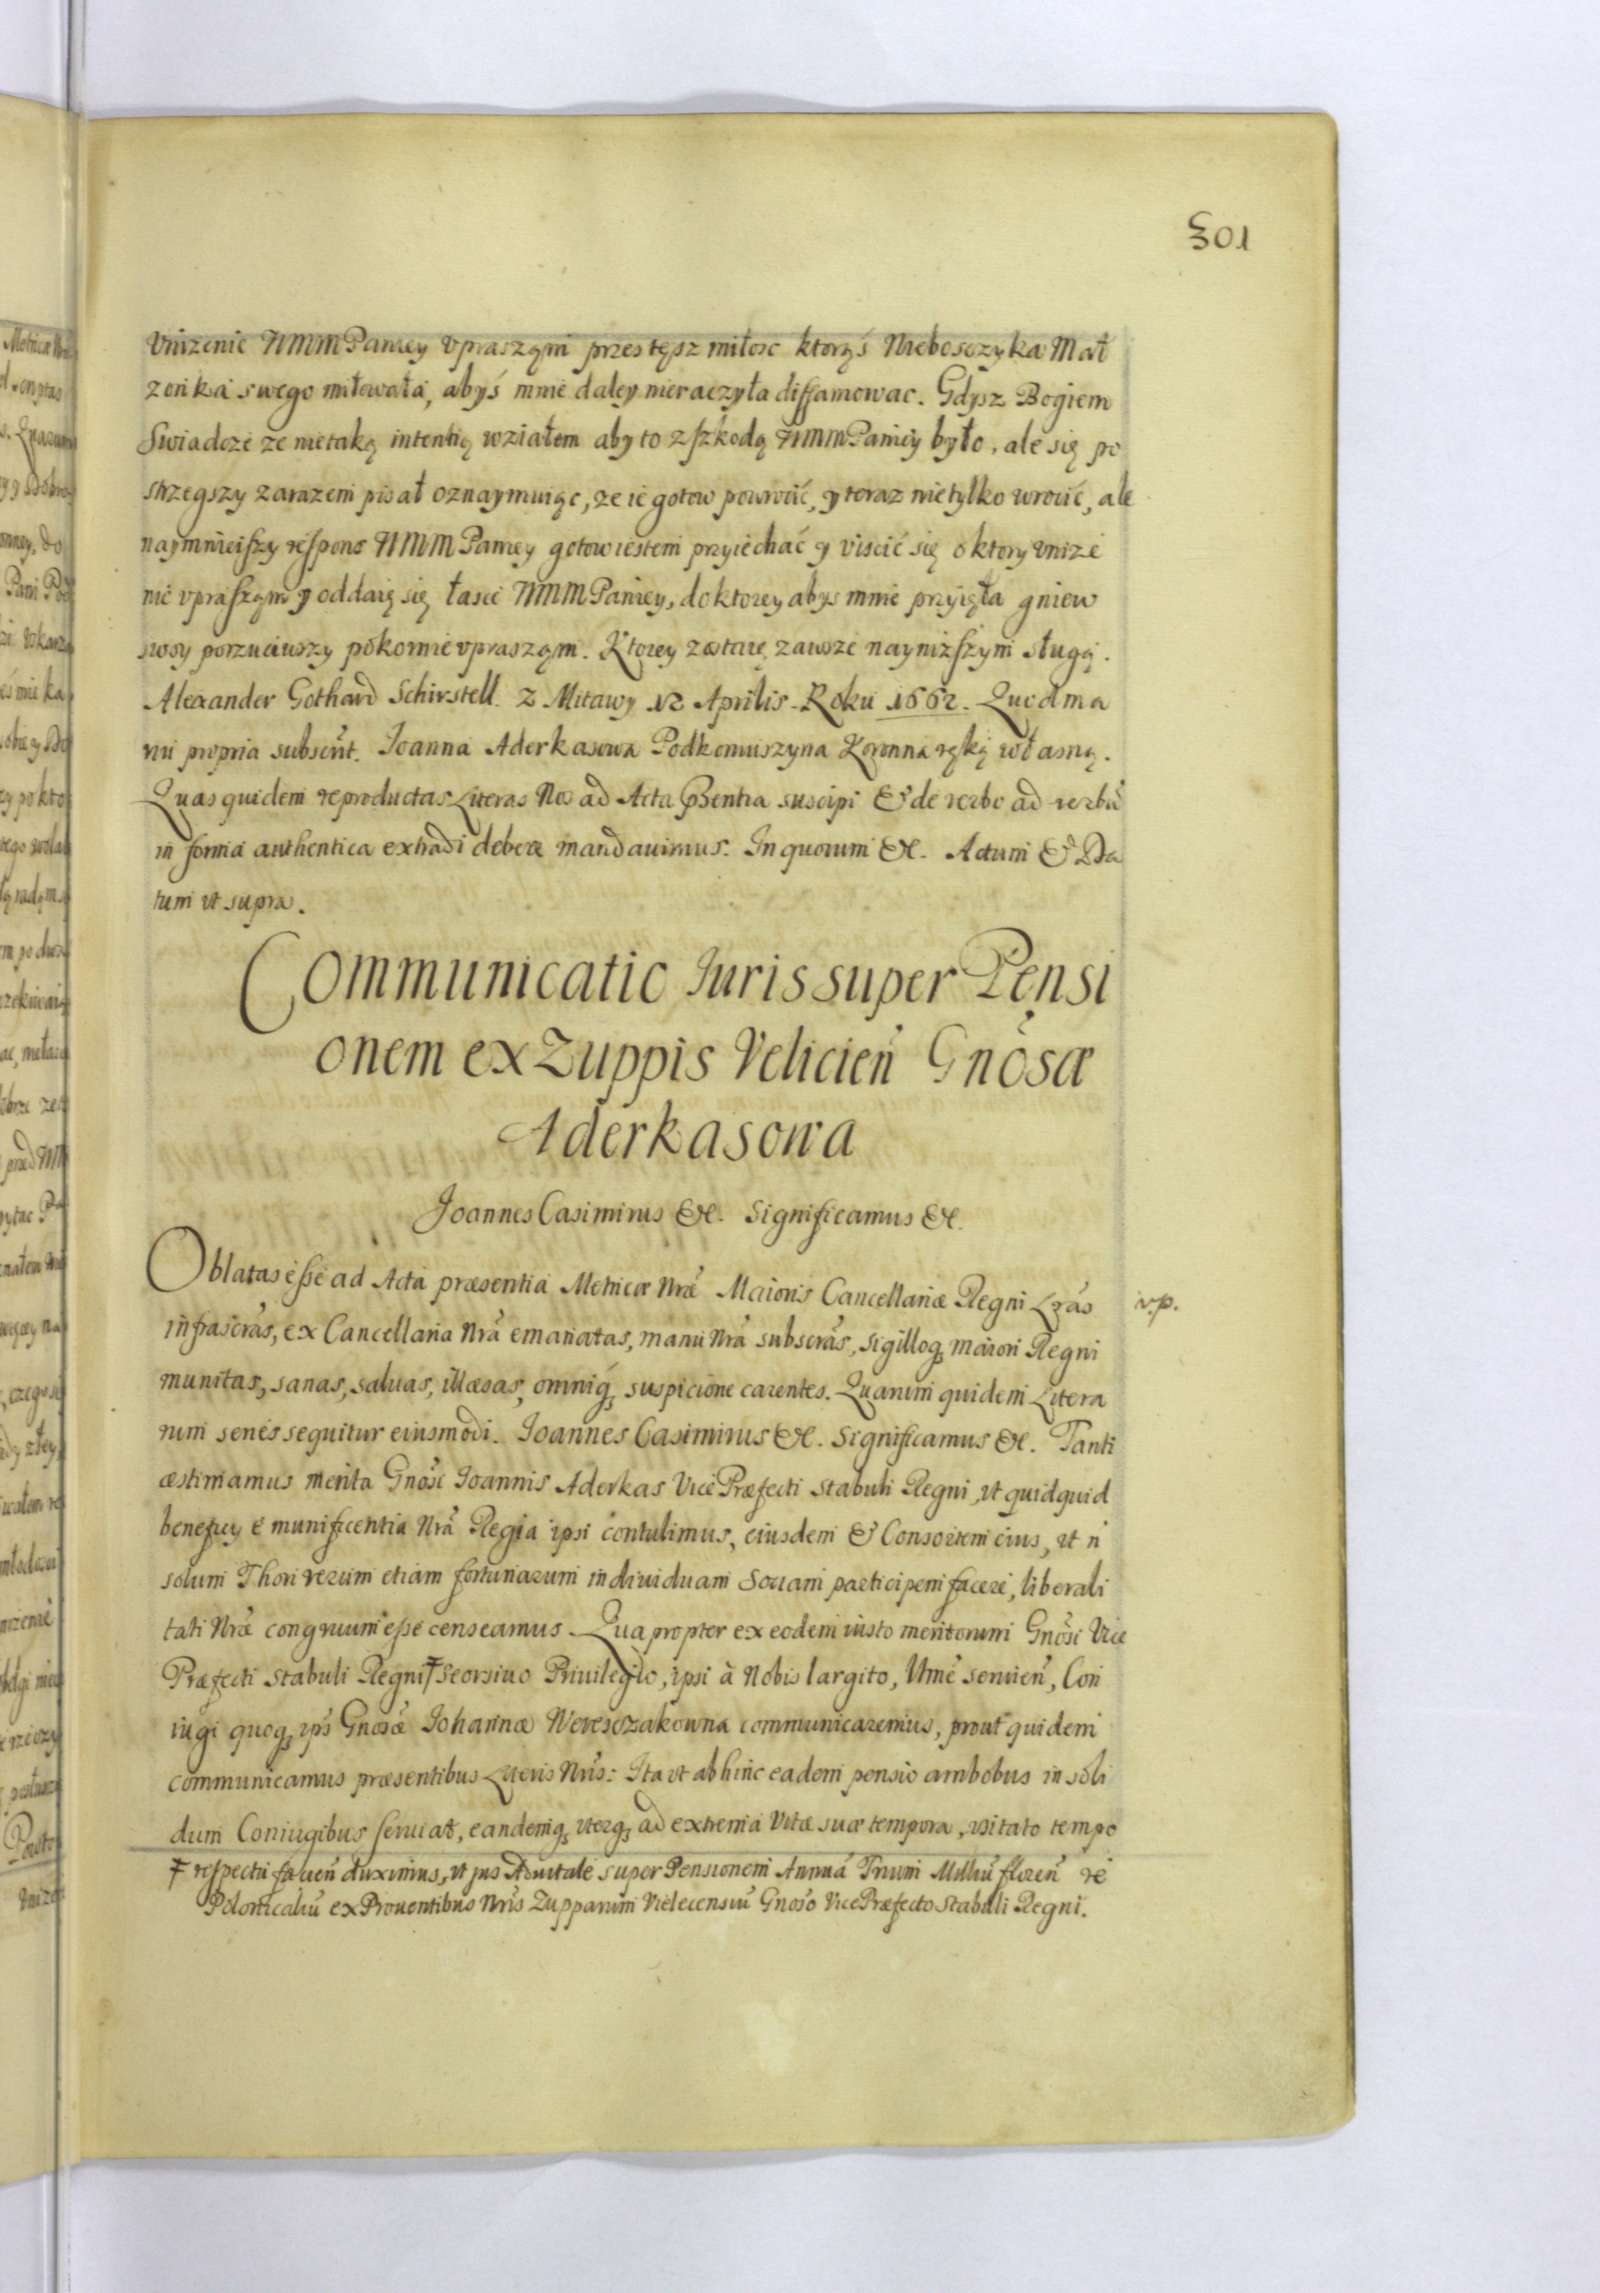 301
Vnizenie WMM Paniey vpraszam przes tęsz miłosc ktorąś Nieboszczyka Mał
zonka swego miłowała, abyś mnie daley nieraczyła diffamowac. Gdysz Bogiem
swiadczę ze nietaką intentią wziałem aby to z szkodą WMM Paniey było, ale się po
strzegszy zarazem pisał oznaymuiąc, ze ie gotow powrocić, y teraz nietylko wrocić, ale
naymnieiszy respons WMM Paniey gotow iestem przyiechać y viscić się o ktory vnize
nie vpraszam y oddaię się łasce WMM Paniey, do ktorey abys mnie przyięła gniew
swoy porzuciwszy pokornie vpraszam. Ktorey zostaię zawsze nayniższym sługą.
Alexander Gothard Schirstell. z Mitawy 12 Aprilis. Roku 1662. Quod ma
nu propria subscrĩt. Joanna Aderkasowa Podkoniuszyna Koronna ręką własną.
Quas quidem reproductas Literas Nos ad Acta Pñentia suscipi & de verbo ad verbũ
in forma authentica extradi debere mandauimus. In quorum &c. Actum & Da
tum vt supra.
Communicatio Iuris super Pensi
onem ex Zuppis Velicieñ Gnõsæ
Aderkasowa
Joannes Casimirus &c. Significamus &c.
Oblatas esse ad Acta præsentia Metricæ Nræ Maioris Cancellariæ Regni Lrãs
v.p.
infrascrãs, ex Cancellaria Nrã emanatas, manu Nrã subscrãs, sigilloq maiori Regni
munitas, sanas, saluas, illæsas, omniq suspicione carentes. Quarum quidem Litera
rum senẽs sequitur eiusmodi. Joannes Casimirus &c. Significamus &c. Tanti
æstimamus merita Gnõsi Joannis Aderkas Vice Præfecti Stabuli Regni, vt quidquid
beneficij è munificentia Nrã Regia ipsi contulimus, eiusdem & Consortem eius, vt ñ
solum Thori verum etiam fortunarum indiuiduam Sociam participem facere, liberali
tati Nræ congruum esse censeamus. Quapropter ex eodem iusto meritorum Gnõsi Vice
Præfecti Stabuli Regni ‡ Seorsiuo Priuilegio, ipsi à Nobis largito, Vltmẽ seruieñ, Con
iugi quoq ips Gnõsæ Johannæ Wereszczakowna communicaremus, prout quidem
communicamus præsentibus Literis Nrĩs: Ita vt abhinc eadem pensio ambobus in soli
dum Coniugibus seruiat, eandemq vterq ad extrema Vitæ suæ tempora, vsitato tempo
‡ respectu facieñ duximus, vt jus Aduitale super Pensionem Annuã Trium Milliũ floreñ re
Polonicaliũ ex Prouentibus Nrĩs Zupparum Vielecensiũ Gnõso Vice Præfecto Stabuli Regni.